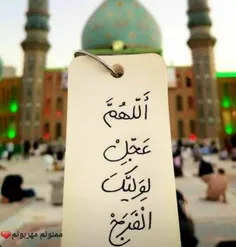 أَللّهُمَّ
عَجِّلْ
لِوَلِيِّكَ
الْفَرَجْ
ممنونم مهربونم❤